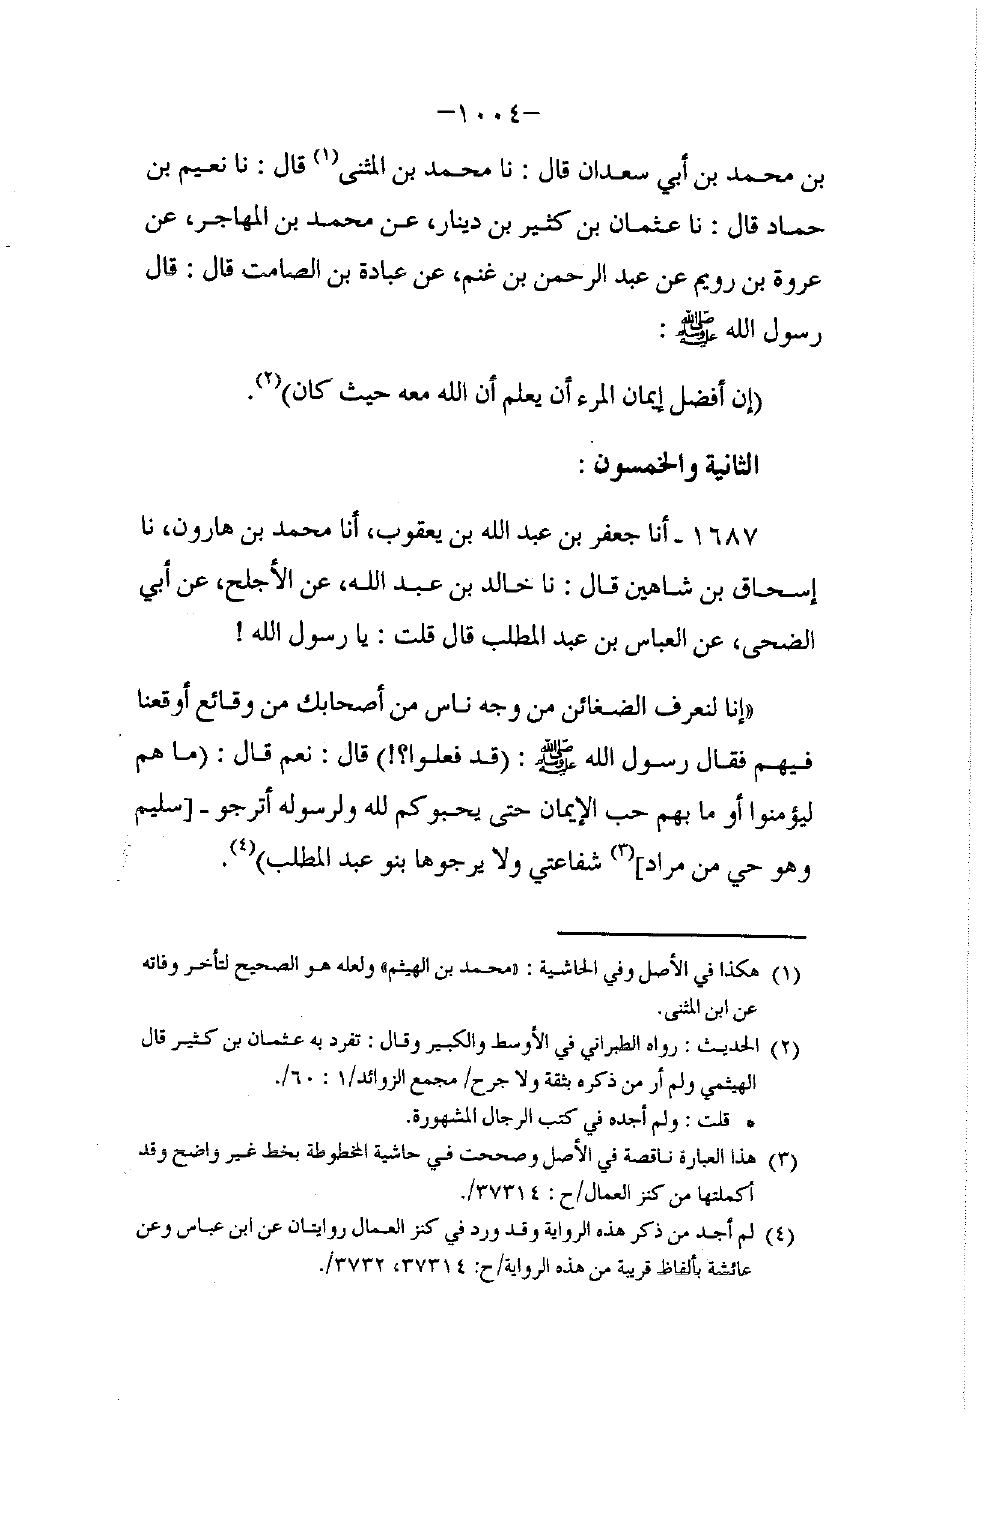 -١٠٠٤-
بن محمد بن أبي سعدان قال : نا محمد بن المثنى(١) قال : نا نعيم بن
حماد قال : نا عثمان بن كثير بن دينار، عن محمد بن المهاجر، عن
عروة بن رويم عن عبد الرحمن بن غنم، عن عبادة بن الصامت قال : قال
رسول الله ﷺ :
(إن أفضل إيمان المرء أن يعلم أن الله معه حيث كان)(٢).
الثانية والخمسون :
١٦٨٧ ـ أنا جعفر بن عبد الله بن يعقوب، أنا محمد بن هارون، نا
إسحاق بن شاهين قال : نا خالد بن عبد الله، عن الأجلح، عن أبي
الضحى، عن العباس بن عبد المطلب قال قلت : يا رسول الله !
«إنا لنعرف الضغائن من وجه ناس من أصحابك من وقائع أوقعنا
فيهم فقال رسول الله ﷺ : (قد فعلوا؟!) قال : نعم قال : (ما هم
ليؤمنوا أو ما بهم حب الإيمان حتى يحبوكم لله ولرسوله أترجو ـ [سليم
وهو حي من مراد](٣) شفاعتي ولا يرجوها بنو عبد المطلب)(٤).
(١) هكذا في الأصل وفي الحاشية : «محمد بن الهيثم» ولعله هو الصحيح لتأخر وفاته
عن ابن المثنى.
(٢) الحديث : رواه الطبراني في الأوسط والكبير وقال : تفرد به عثمان بن كثير قال
الهيثمي ولم أر من ذكره بثقة ولا جرح/ مجمع الزوائد/١ : ٦٠/.
• قلت : ولم أجده في كتب الرجال المشهورة.
(٣) هذا العبارة ناقصة في الأصل وصححت في حاشية المخطوطة بخط غير واضح وقد
أكملتها من كنز العمال/ح : ٣٧٣١٤/.
(٤) لم أجد من ذكر هذه الرواية وقد ورد في كنز العمال روايتان عن ابن عباس وعن
عائشة بألفاظ قريبة من هذه الرواية/ح: ٣٧٣١٤، ٣٧٣٢/.